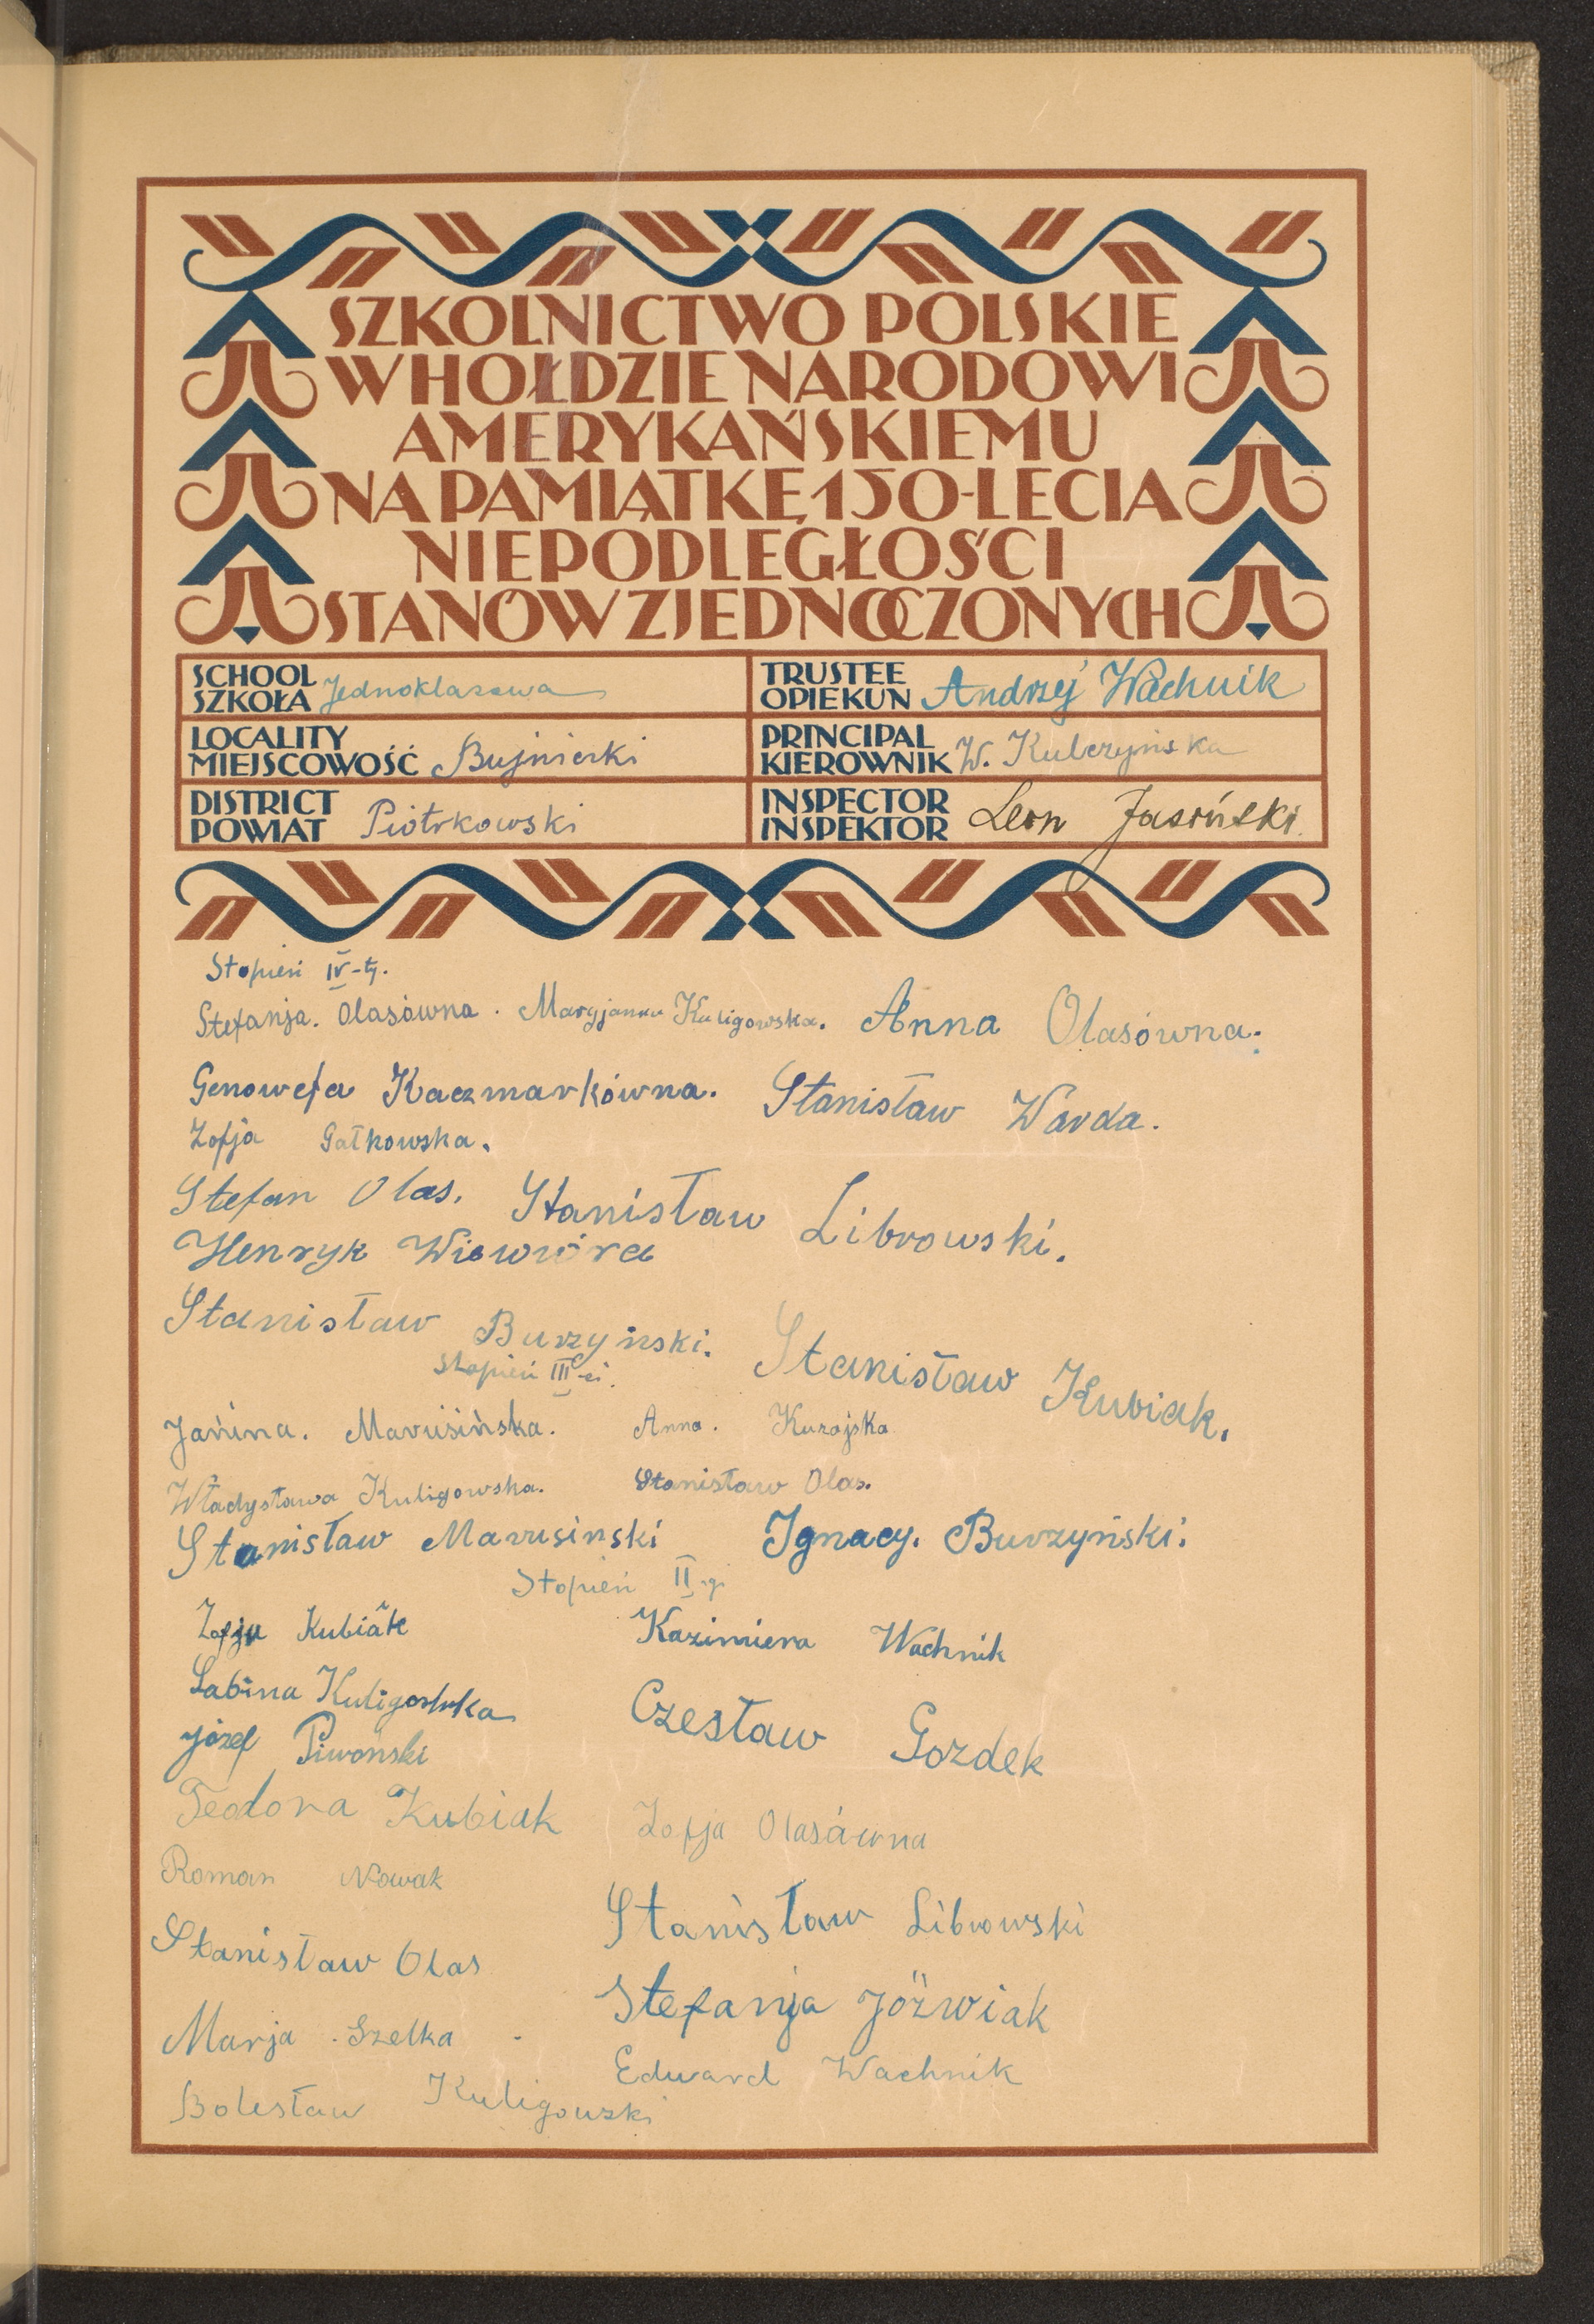 SZKOLNICTWO POLSKIE
W HOŁDZIE NARODOWI
AMERYKAŃSKIEMU
NA PAMIĄTKĘ 150-LECIA
NIEPODLEGŁOŚCI
STANÓW ZJEDNOCZONYCH
SCHOOL
SZKOŁA Jednoklasowa
TRUSTEE
OPIEKUN Andrzej Wachnik
LOCALITY
MIEJSCOWOŚĆ Bujnierki
PRINCIPAL
KIEROWNIK W. Kulczyńska
DISTRICT
POWIAT Piotrkowski
INSPECTOR
INSPEKTOR Leon Jasiński.
Stopień IV-ty.
Stefanja. Olasówna. Maryjanna Kuligowska. Anna Olasówna.
Genowefa Kaczmarkówna. Stanisław Warda.
Zofja Gałkowska.
Stefan Olas. Stanisław Librowski.
Henryk Wiewióra
Stanisław Burzyński. Stanisław Kubiak.
Stopień III-ci.
Janina. Marusińska. Anna. Kurajska
Władysława Kuligowska. Stanisław Olas.
Stanisław Marusinski Ignacy. Burzyński.
Stopień II-gi
Zofja Kubiak Kazimiera Wachnik
Sabina Kuligowska Czesław Gozdek
Józef Piwonski
Teodora Kubiak Zofja Olasówna
Roman Nowak Stanisław Librowski
Stanisław Olas Stefanja Jóżwiak
Marja Szelka Edward Wachnik
Bolesław Kuligowski